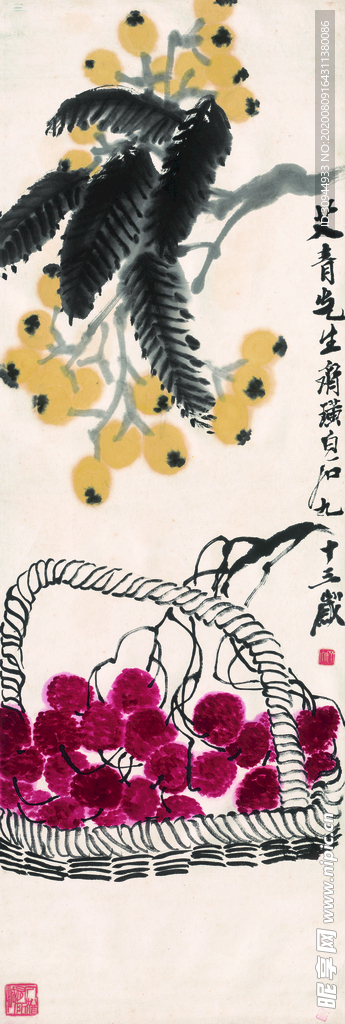 史青先生齐璜白石九十三歲
ID:30944933 NO:20200809164311380086
昵享网 www.nipic.cn